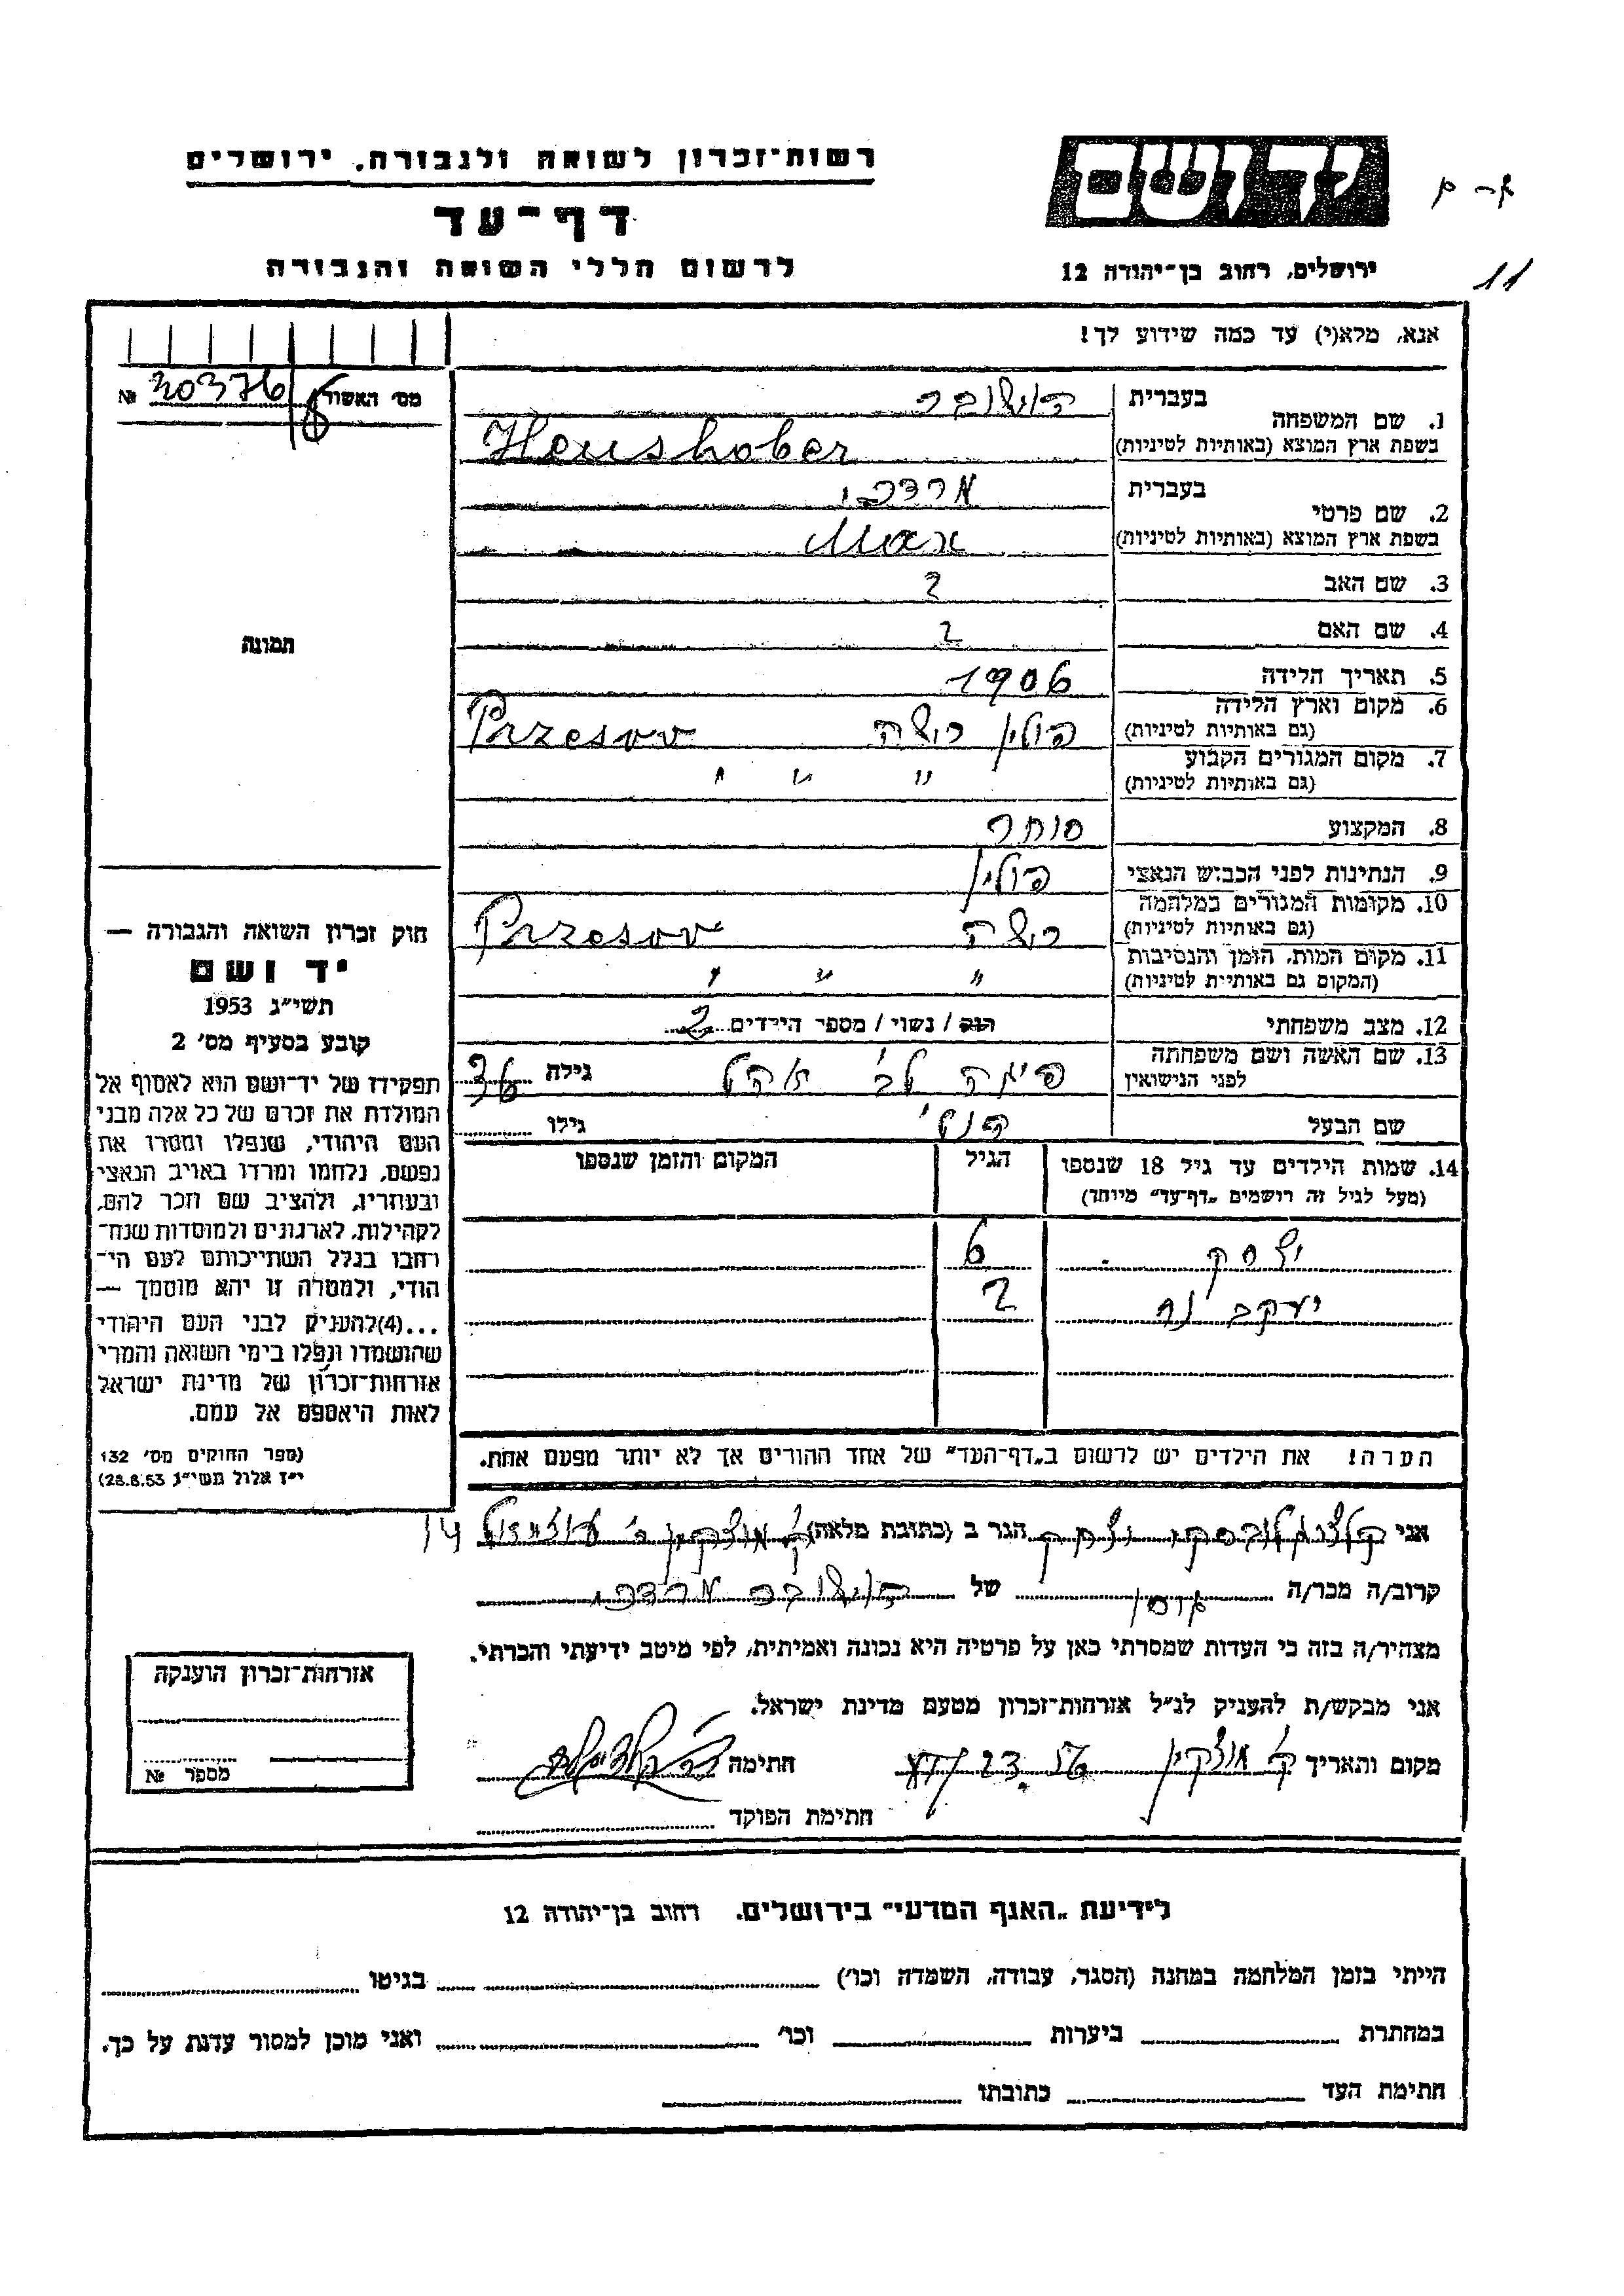 רשות-זכרון לשואה ולגבורה, ירושלים
דף-עד
לרשום חללי השואה והגבורה
יד ושם
ירושלים, רחוב בן-יהודה 12
11
אנא, מלא(י) עד כמה שידוע לך!
מס' האשור № 20376
1. שם המשפחה בעברית הוישובר
בשפת ארץ המוצא (באותיות לטיניות) Heushober
2. שם פרטי בעברית מרדכי
בשפת ארץ המוצא (באותיות לטיניות) Max
3. שם האב ?
4. שם האם ?
5. תאריך הלידה 1906
6. מקום וארץ הלידה (גם באותיות לטיניות) פולין Przesov
7. מקום המגורים הקבוע (גם באותיות לטיניות) " " "
8. המקצוע סוחר
9. הנתינות לפני הכבוש הנאצי פולין
10. מקומות המגורים במלחמה (גם באותיות לטיניות) Przesov
11. מקום המות, הזמן והנסיבות (המקום גם באותיות לטיניות) " " "
12. מצב משפחתי רוק / נשוי / מספר הילדים 2
13. שם האשה ושם משפחתה לפני הנישואין גילה 36
שם הבעל גילו
14. שמות הילדים עד גיל 18 שנספו
(מעל לגיל זה רושמים „דף-עד" מיוחד)
הגיל
המקום והזמן שנספו
יצחק 6
יעקב 2
הערה! את הילדים יש לרשום ב„דף-העד" של אחד ההורים אך לא יותר מפעם אחת.
תמונה
חוק זכרון השואה והגבורה —
יד ושם
תשי"ג 1953
קובע בסעיף מס' 2
תפקידו של יד-ושם הוא לאסוף אל
המולדת את זכרם של כל אלה מבני
העם היהודי, שנפלו ומסרו את
נפשם, נלחמו ומרדו באויב הנאצי
ובעוזריו, ולהציב שם וזכר להם,
לקהילות, לארגונים ולמוסדות שנח-
רחבו בגלל השתייכותם לעם הי-
הודי, ולמטרה זו יהא מוסמך —
...(4)להעניק לבני העם היהודי
שהושמדו ונפלו בימי השואה והמרי
אזרחות-זכרון של מדינת ישראל
לאות היאספם אל עמם.
(ספר החוקים מס' 132
י"ז אלול תשי"ג 28.8.53)
אני יצחק הגר ב (כתובת מלאה) ק' מוצקין 14
קרוב/ה מכר/ה של הוישובר מרדכי
מצהיר/ה בזה כי העדות שמסרתי כאן על פרטיה היא נכונה ואמיתית, לפי מיטב ידיעתי והכרתי.
אני מבקש/ת להעניק לנ"ל אזרחות-זכרון מטעם מדינת ישראל.
מקום ותאריך ק' מוצקין חתימה
חתימת הפוקד
אזרחות-זכרון הוענקה
מספר №
לידיעת „האגף המדעי" בירושלים, רחוב בן-יהודה 12
הייתי בזמן המלחמה במחנה (הסגר, עבודה, השמדה וכו') בגיטו
במחתרת ביערות וכו' ואני מוכן למסור עדות על כך.
חתימת העד כתובתו